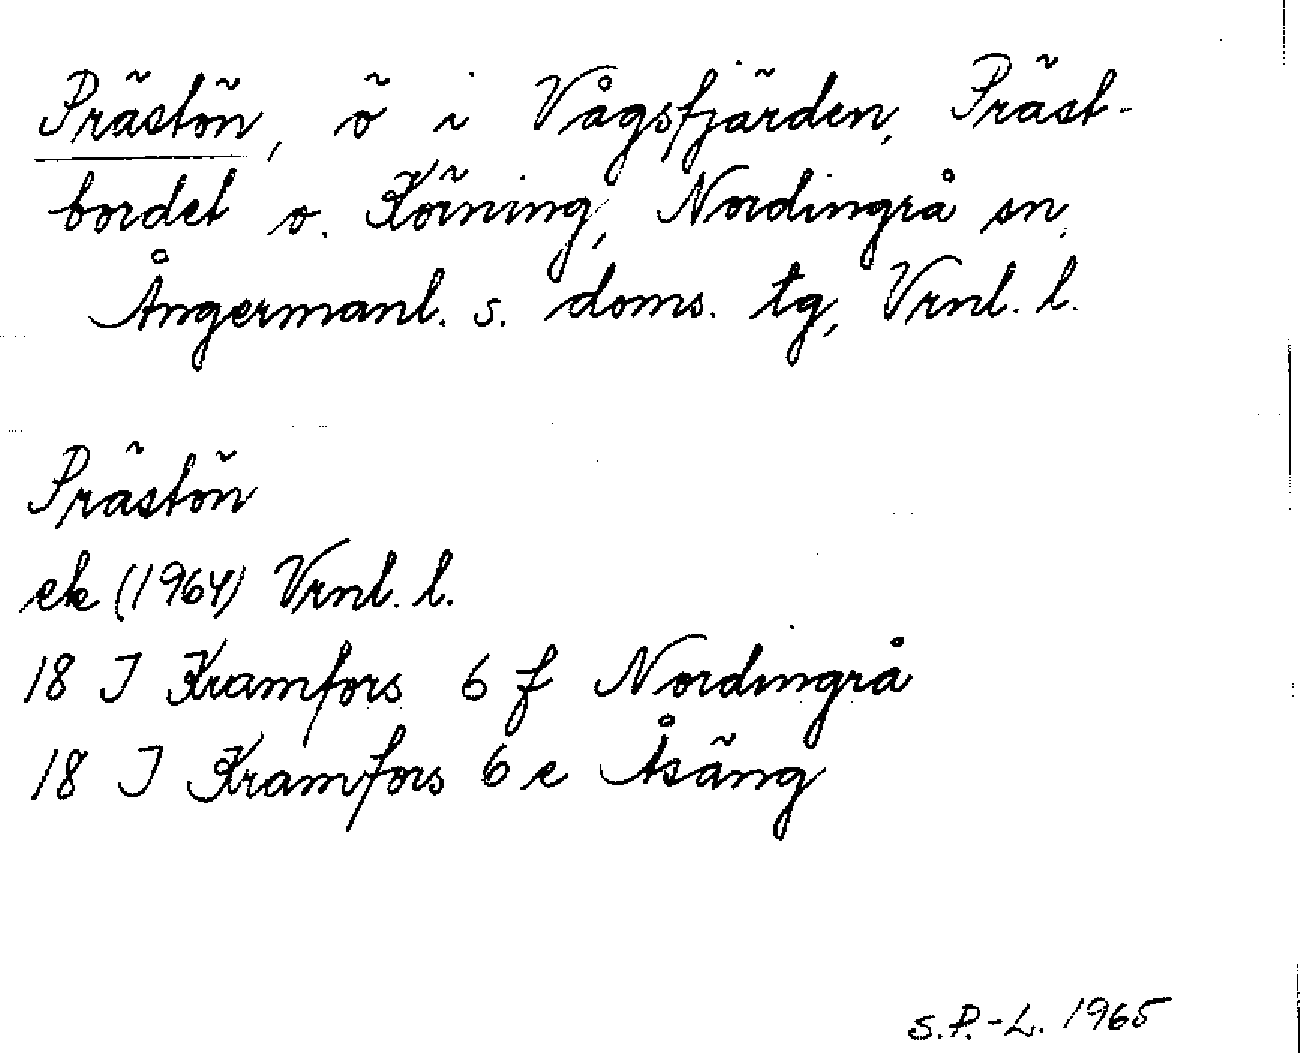 Prästön, ö i Vågsfjärden, Präst-
bordet o. Körning, Nordingrå sn,
Ångermanl. s. doms. tg, Vrnl. l.
Prästön
ek (1964) Vrnl. l.
18 I Kramfors 6 f Nordingrå
18 I Kramfors 6 e Åsäng
S.P.-L. 1965